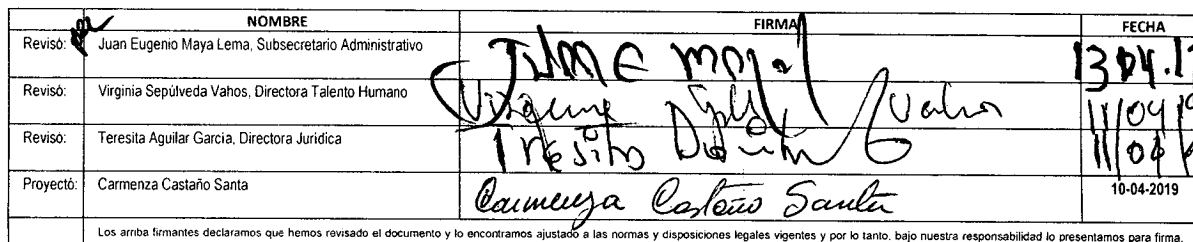 NOMBRE FIRMA FECHA
Revisó: Juan Eugenio Maya Lema, Subsecretario Administrativo
Revisó: Virginia Sepúlveda Vahos, Directora Talento Humano Vahos 11/04/
Revisó: Teresita Aguilar Garcia, Directora Jurídica 11/04/
Proyectó: Carmenza Castaño Santa Carmenza Castaño Santa 10-04-2019
Los arriba firmantes declaramos que hemos revisado el documento y lo encontramos ajustado a las normas y disposiciones legales vigentes y por lo tanto, bajo nuestra responsabilidad lo presentamos para firma.